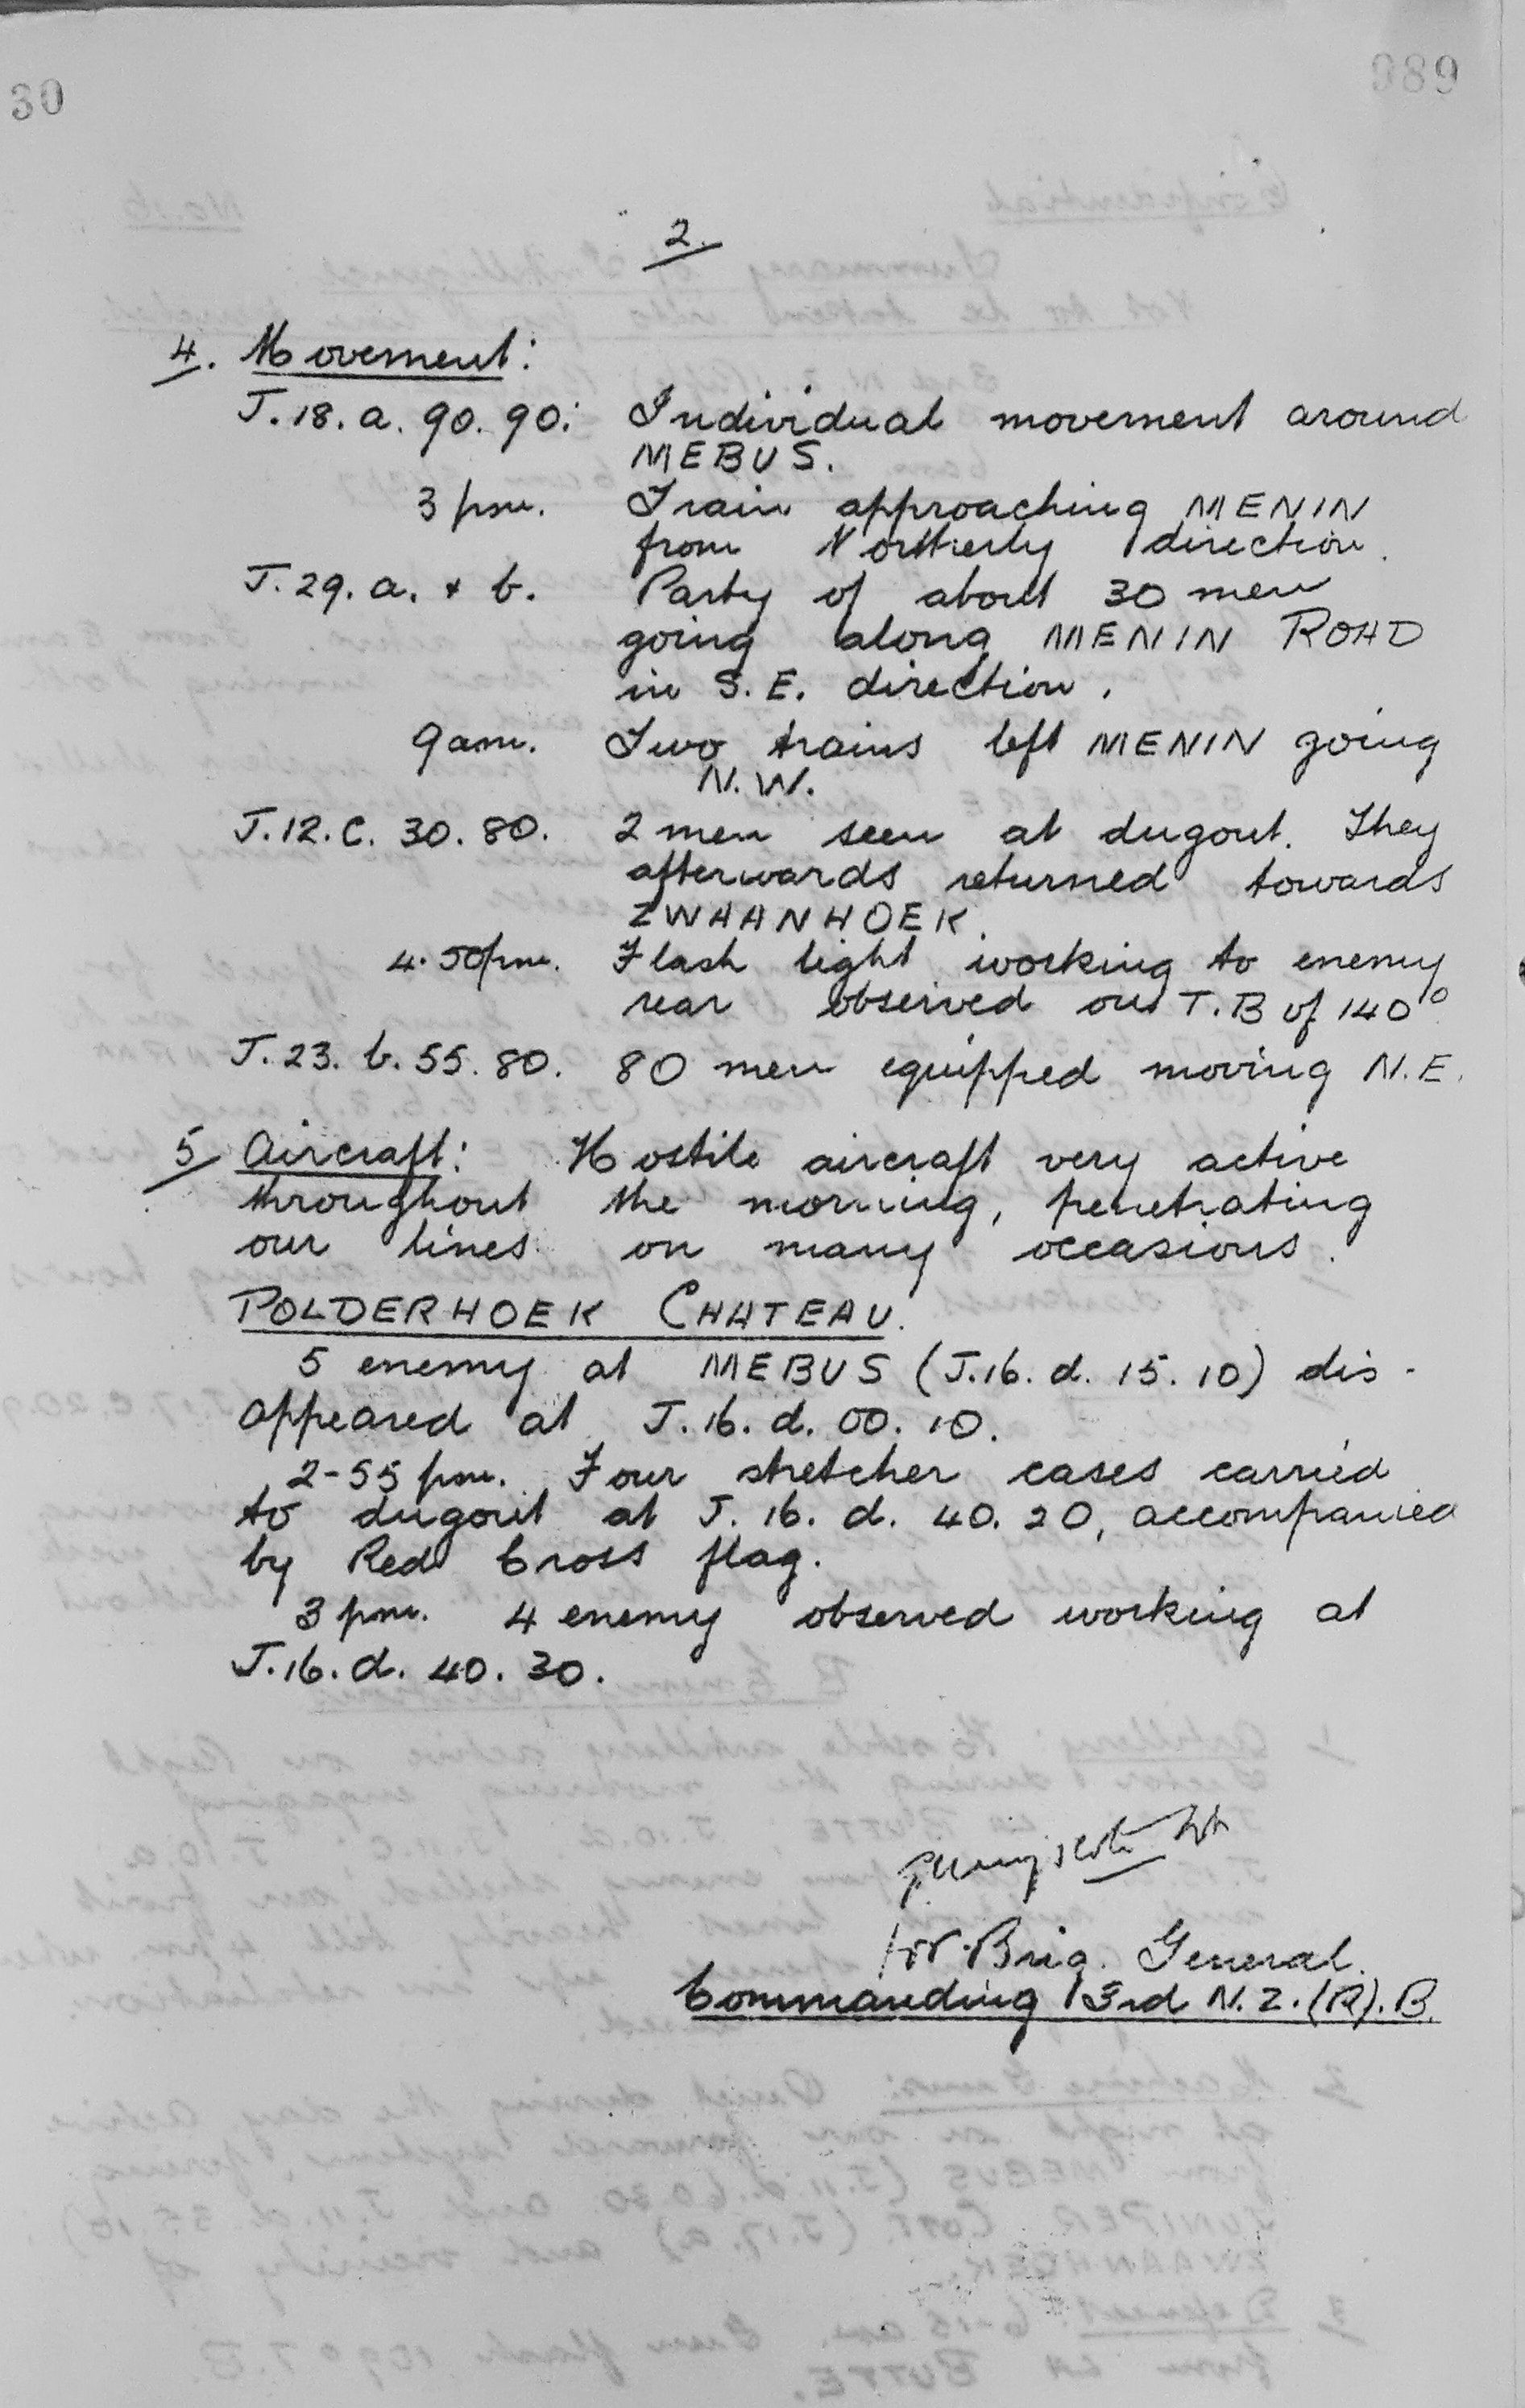 30
989
2.
4. Movement:
J.18.a. 90. 90: Individual movement around
MEBUS.
3 pm. Train approaching MENIN
from Northerly direction.
J.29.a. + b. Party of about 30 men
going along MENIN ROAD
in S.E. direction.
9am. Two trains left MENIN going
N.W.
J.12.C. 30. 80. 2 men seen at dugout. They
afterwards returned towards
ZWAANHOEK.
4.50pm. Flash light working to enemy
rear observed on T.B of 140°
J.23.b.55.80. 80 men equipped moving N.E.
5 Aircraft: Hostile aircraft very active
throughout the morning, penetrating
our lines on many occasions.
POLDERHOEK CHATEAU.
5 enemy at MEBUS (J.16.d. 15.10) dis-
appeared at J.16.d. 00. 10.
2-55 pm. Four stretcher cases carried
to dugout at J. 16. d. 40. 20, accompanied
by Red Cross flag.
3 pm. 4 enemy observed working at
J.16.d. 40. 30.
for Brig. General.
Commanding 3rd N.Z.(R).B.